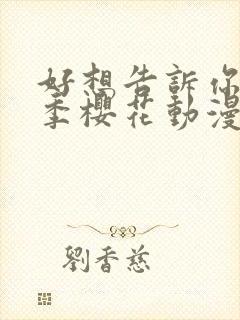 好想告訴你
季櫻花動漫
劉香慈